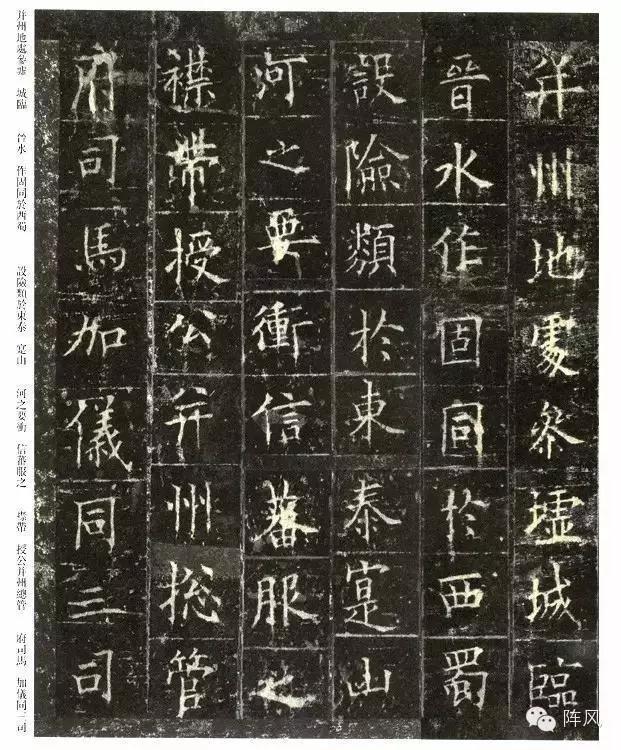 并州地處參墟城臨
晉水作固同於西蜀
設險類於東泰寔山
河之要衝信蕃服之
襟帶授公并州揔管
府司馬加儀同三司
并州地處參墟 城臨 晉水 作固同於西蜀 設險類於東泰 寔山 河之要衝 信蕃服之 襟帶 授公并州總管 府司馬 加儀同三司
阵风